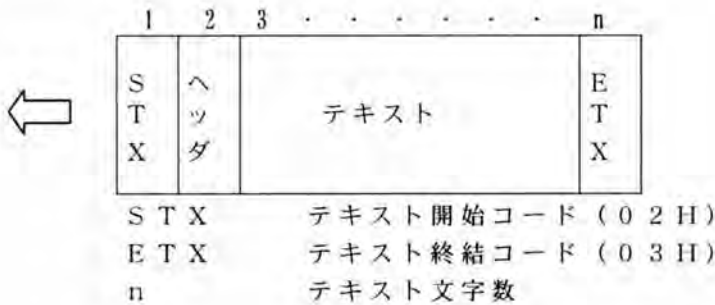 1 2 3 · · · · · · n
STX ヘッダ テキスト ETX
STX テキスト開始コード(02H)
ETX テキスト終結コード(03H)
n テキスト文字数